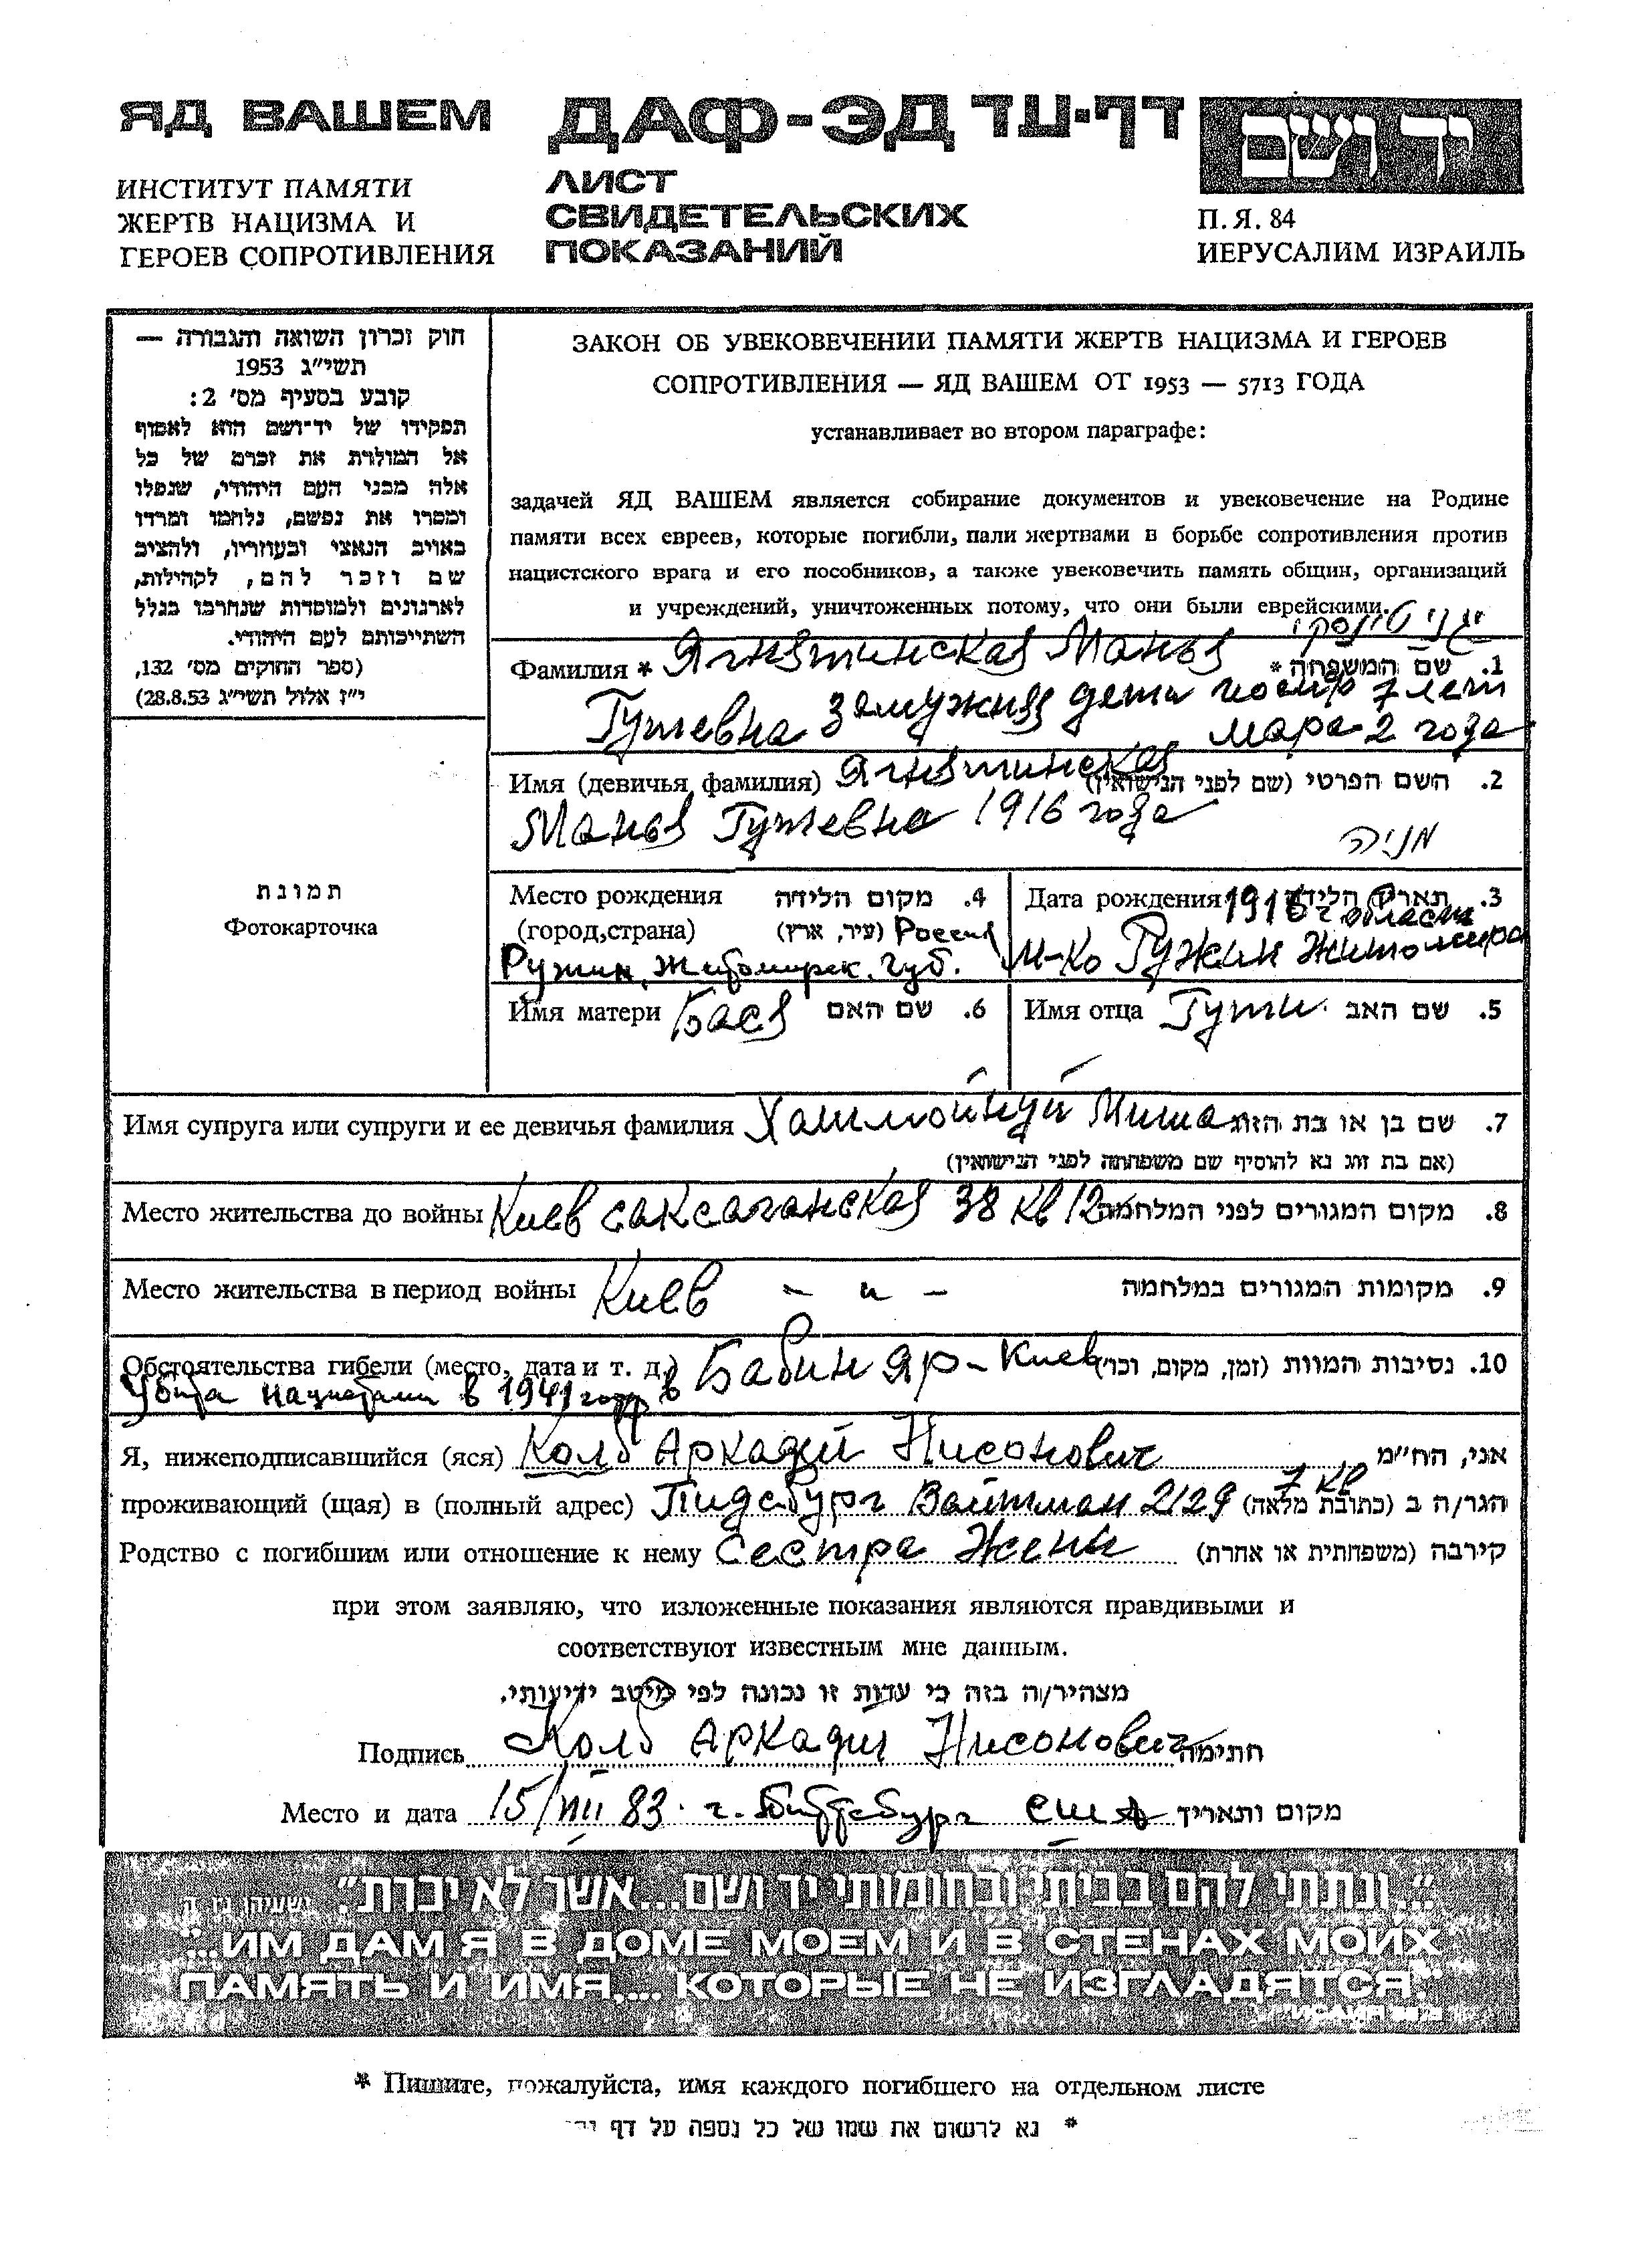 ЯД ВАШЕМ
ДАФ-ЭД דף-עד
יד ושם
ИНСТИТУТ ПАМЯТИ
ЖЕРТВ НАЦИЗМА И
ГЕРОЕВ СОПРОТИВЛЕНИЯ
ЛИСТ
СВИДЕТЕЛЬСКИХ
ПОКАЗАНИЙ
П.Я. 84
ИЕРУСАЛИМ ИЗРАИЛЬ
חוק זכרון השואה והגבורה —
תשי״ג 1953
קובע בסעיף מס׳ 2:
תפקידו של יד־ושם הוא לאסוף
אל המולדת את זכרם של כל
אלה מבני העם היהודי, שנפלו
ומסרו את נפשם, נלחמו ומרדו
באויב הנאצי ובעוזריו, ולהציב
שם וזכר להם, לקהילות,
לארגונים ולמוסדות שנחרבו בגלל
השתייכותם לעם היהודי.
(ספר החוקים מס׳ 132,
י״ז אלול תשי״ג 28.8.53)
ЗАКОН ОБ УВЕКОВЕЧЕНИИ ПАМЯТИ ЖЕРТВ НАЦИЗМА И ГЕРОЕВ
СОПРОТИВЛЕНИЯ — ЯД ВАШЕМ ОТ 1953 — 5713 ГОДА
устанавливает во втором параграфе:
задачей ЯД ВАШЕМ является собирание документов и увековечение на Родине
памяти всех евреев, которые погибли, пали жертвами в борьбе сопротивления против
нацистского врага и его пособников, а также увековечить память общин, организаций
и учреждений, уничтоженных потому, что они были еврейскими.
Фамилия * Ягнятинская Манья 1. שם המשפחה *
замужняя дети 7 лет
Мара 2 года
Имя (девичья фамилия) Ягнятинская 2. השם הפרטי (שם לפני הנישואין)
Манья 1916 года
מניה
Место рождения 4. מקום הלידה
(город, страна) (עיר, ארץ) Россия
Ружин, Житомирск. губ.
Дата рождения 1916 3. תאריך הלידה
м-ко Ружин Житомира
Имя матери Бася 6. שם האם
Имя отца 5. שם האב
תמונת
Фотокарточка
Имя супруга или супруги и ее девичья фамилия Миша 7. שם בן או בת הזוג
(אם בת זוג נא להוסיף שם משפחתה לפני הנישואין)
Место жительства до войны Киев саксаганская 38 кв 12 8. מקום המגורים לפני המלחמה
Место жительства в период войны Киев — „ — 9. מקומות המגורים במלחמה
Обстоятельства гибели (место, дата и т. д.) Бабин яр - Киев 10. נסיבות המוות (זמן, מקום, וכו׳)
Убита нацистами в 1941 году в
Я, нижеподписавшийся (яся) Колб Аркадий Нисонович אני, הח״מ
7 кв
проживающий (щая) в (полный адрес) Питсбург Вайтман 2129 הגר/ה ב (כתובת מלאה)
Родство с погибшим или отношение к нему Сестра Жены קירבה (משפחתית או אחרת)
при этом заявляю, что изложенные показания являются правдивыми и
соответствуют известным мне данным.
מצהיר/ה בזה כי עדות זו נכונה לפי מיטב ידיעותי.
Подпись Колб Аркадий Нисонович חתימה
Место и дата 15/VIII 83. г. Питтсбург США מקום ותאריך
״...ונתתי להם בביתי ובחומותי יד ושם...אשר לא יכרת״. ישעיהו נו ה
"...ИМ ДАМ Я В ДОМЕ МОЕМ И В СТЕНАХ МОИХ
ПАМЯТЬ И ИМЯ,... КОТОРЫЕ НЕ ИЗГЛАДЯТСЯ."
* Пишите, пожалуйста, имя каждого погибшего на отдельном листе
* נא לרשום את שמו של כל נספה על דף